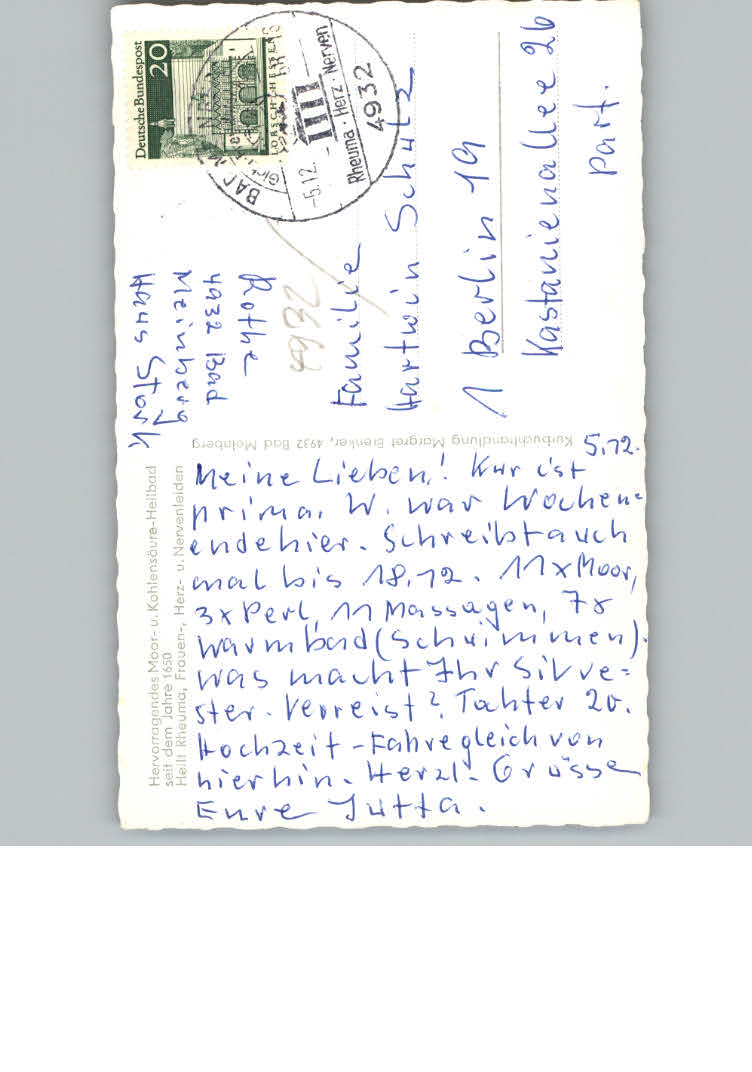 Hervorragendes Moor- u. Kohlensäure-Heilbad
seit dem Jahre 1650
Heilt Rheuma, Frauen-, Herz- u. Nervenleiden
5.12.
Meine Lieben! Kur ist
prima. W. war Wochen=
ende hier. Schreibt auch
mal bis 18.12. 11x Moor,
3x Perl, 11 Massagen, 7x
Warmbad (Schwimmen).
was macht Ihr Silve=
ster. Verreist? Tahter 20.
Hochzeit - Fahre gleich von
hier hin. Herzl. Grüsse
Eure Jutta.
Kurbuchhandlung Margret Brenker, 4932 Bad Meinberg
Rothe
4932 Bad
Meinberg
Haus Stork
4932
Deutsche Bundespost
20
LORSCH/HESSEN
BAD
-5.12.
Rheuma · Herz · Nerven
4932
Familie
Hartwin Schulz
1 Berlin 19
Kastanienallee 26
Part.